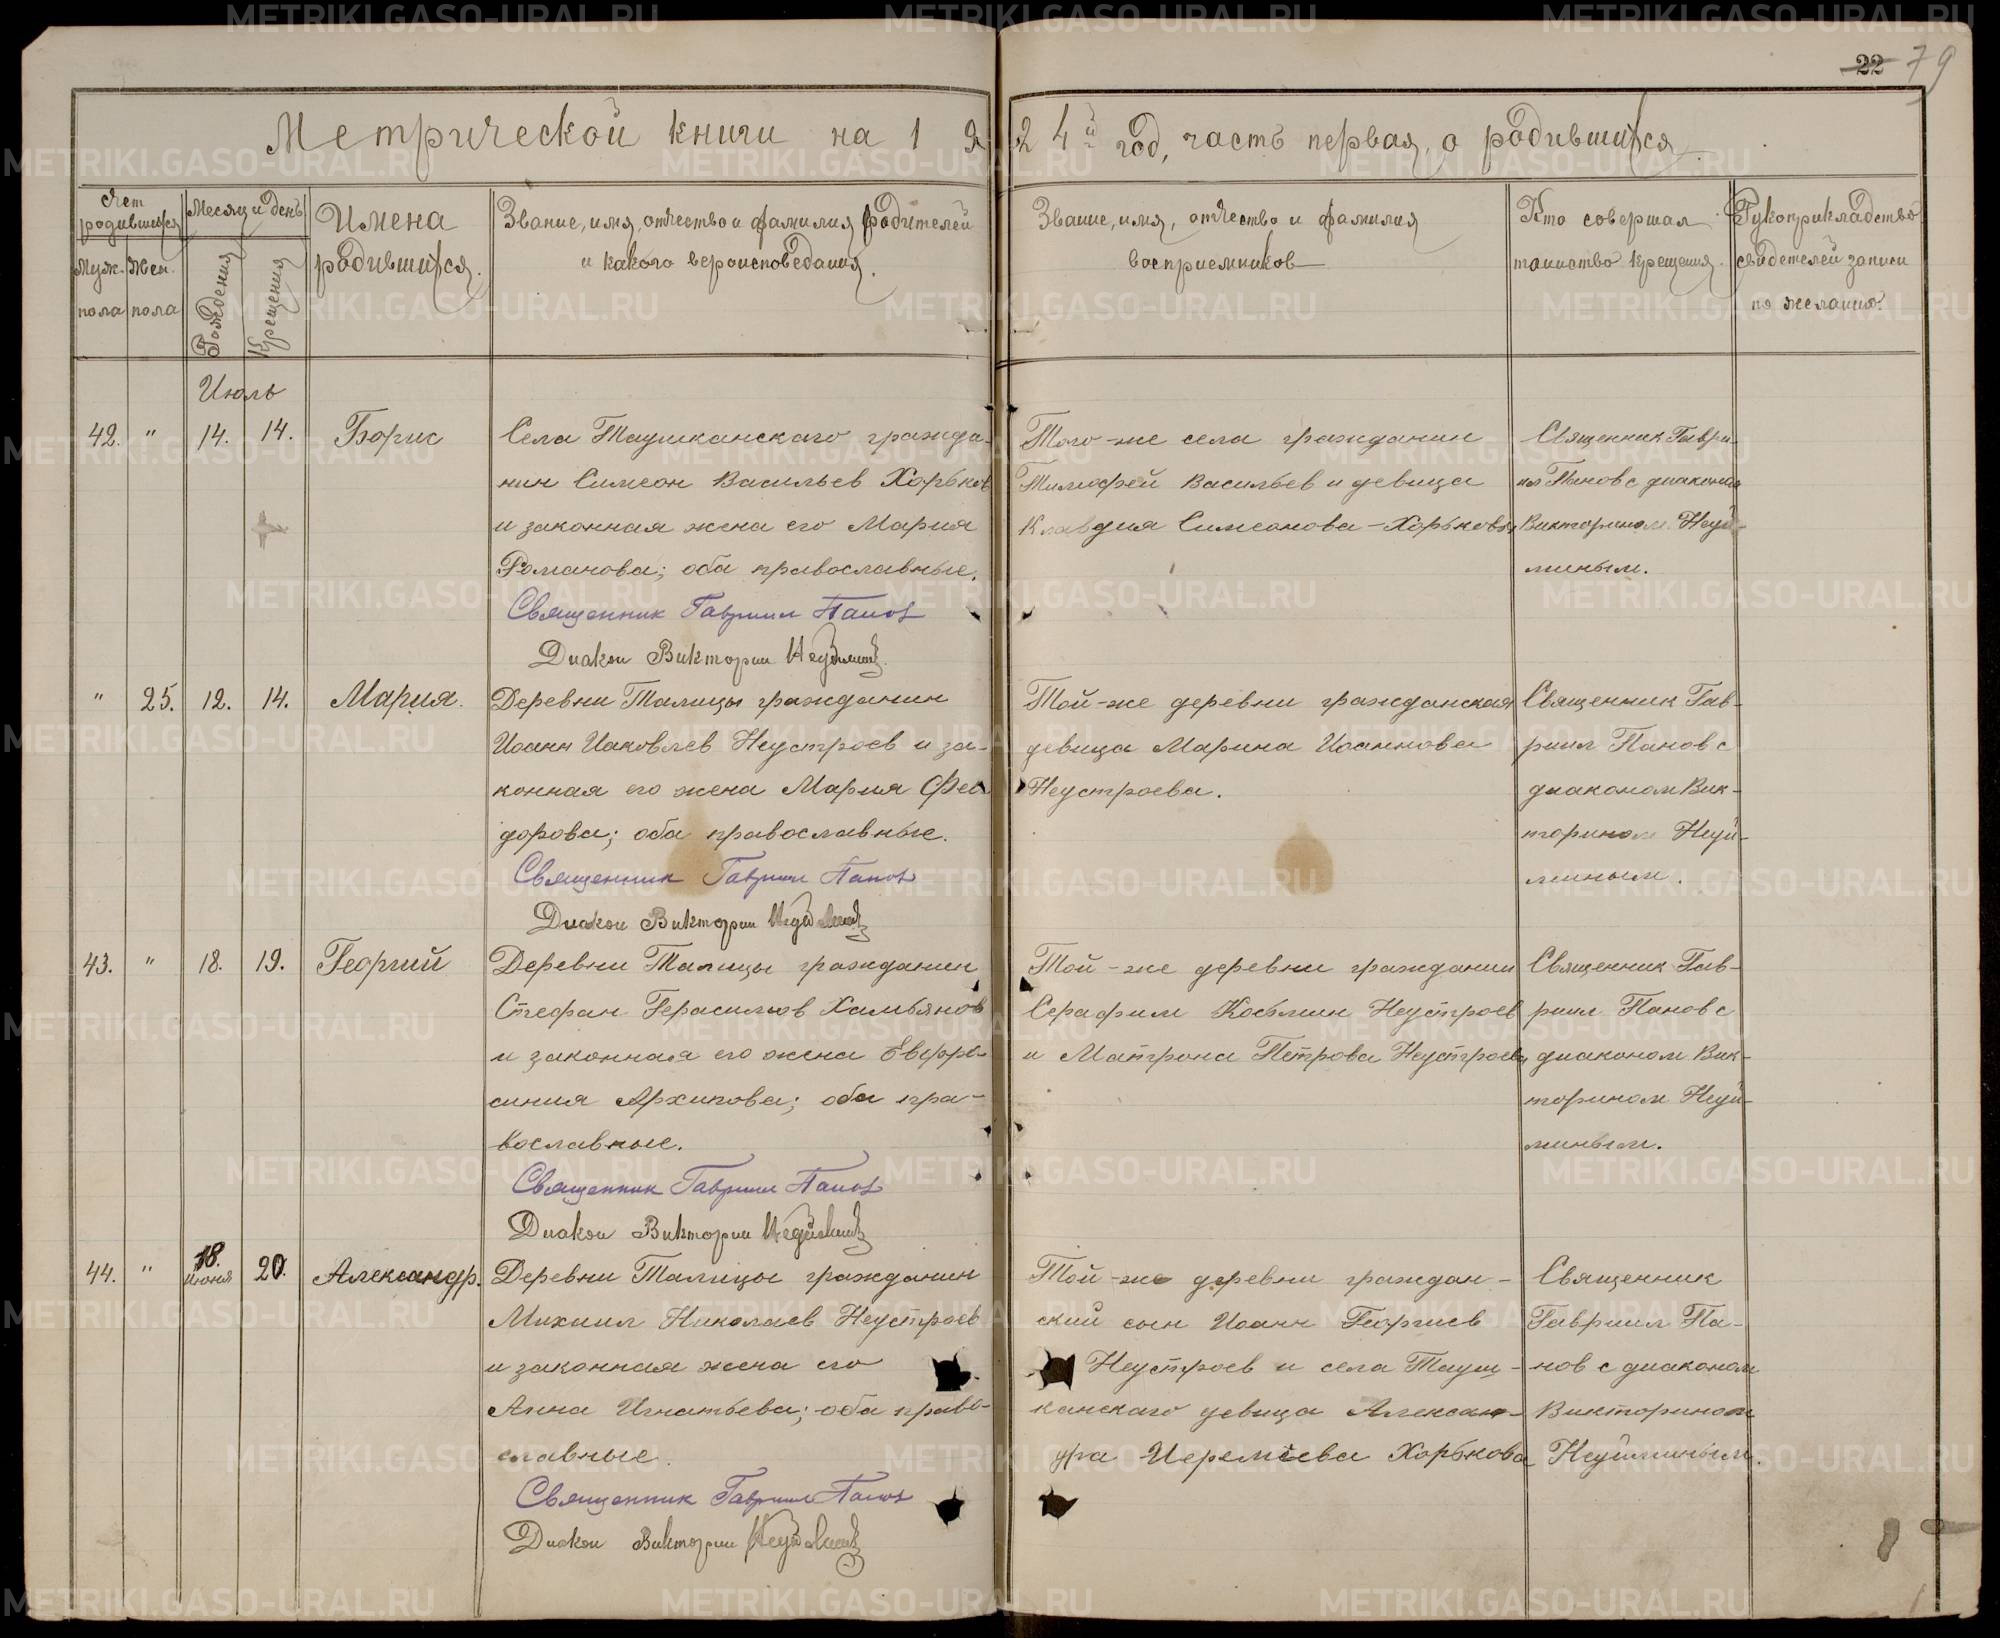 22 79
Метрической книги на 1924й год, часть первая, о родившихся.
Счет родившихся
Муж. пола
Жен. пола
Месяц и день
Рождения
Крещения
Имена родившихся.
Звание, имя, отчество и фамилия родителей
и какого вероисповедания.
Звание, имя, отчество и фамилия
восприемников
Кто совершал
таинство крещения.
Рукоприкладство
свидетелей записи
по желанию.
Июль
42. " 14. 14. Борис
Села Таушканскаго гражда-
нин Симеон Васильев Хорьков
и законная жена его Мария
Романова; оба православные.
Священник Гавриил Панов
Диакон Викторин Неуймин
Того-же села гражданин
Тимофей Васильев и девица
Клавдия Симеонова-Хорьковы
Священник Гаври-
ил Панов с диаконом
Викторином Неуй-
миным.
" 25. 12. 14. Мария.
Деревни Талицы гражданин
Иоанн Иаковлев Неустроев и за-
конная его жена Мария Фео-
дорова; оба православные.
Священник Гавриил Панов
Диакон Викторин Неуймин
Той-же деревни гражданская
девица Марина Иоаннова
Неустроева.
Священник Гав-
риил Панов с
диаконом Вик-
торином Неуй-
миным.
43. " 18. 19. Георгий
Деревни Талицы гражданин
Стефан Герасимов Хамьянов
и законная его жена Евфро-
синия Архипова; оба пра-
вославные.
Священник Гавриил Панов
Диакон Викторин Неуймин
Той-же деревни гражданин
Серафим Косьмин Неустроев
и Матрона Петрова Неустроева
Священник Гав-
риил Панов с
диаконом Вик-
торином Неуй-
миным.
44. " 18. Июня 20. Александр.
Деревни Талицы гражданин
Михаил Николаев Неустроев
и законная жена его
Анна Игнатьева; оба право-
славные.
Священник Гавриил Панов
Диакон Викторин Неуймин
Той-же деревни граждан-
ский сын Иоанн Георгиев
Неустроев и села Тауш-
канскаго девица Алексан-
дра Иеремiева Хорькова
Священник
Гавриил Па-
нов с диаконом
Викторином
Неуйминым.
METRIKI.GASO-URAL.RU